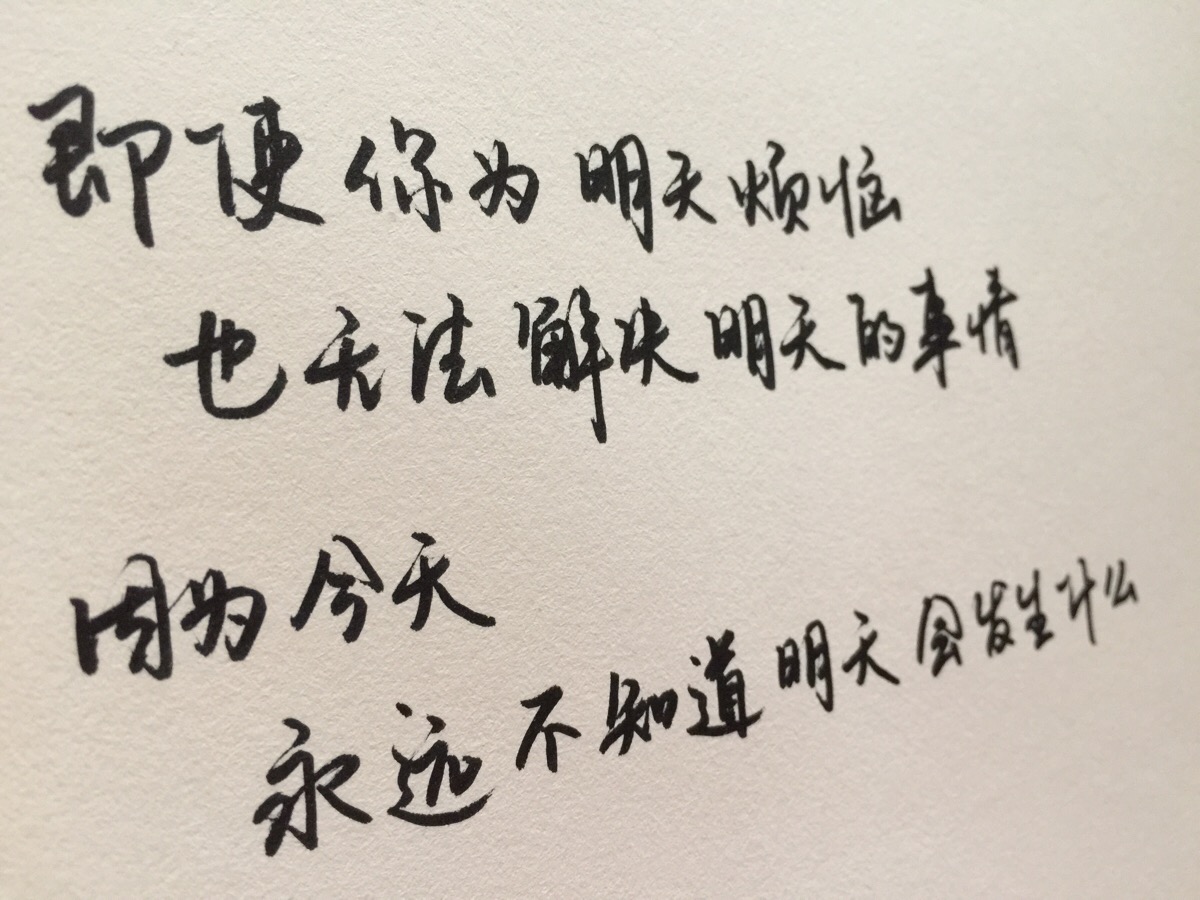 即便你为明天烦恼
也无法解决明天的事情
因为今天
永远不知道明天会发生什么